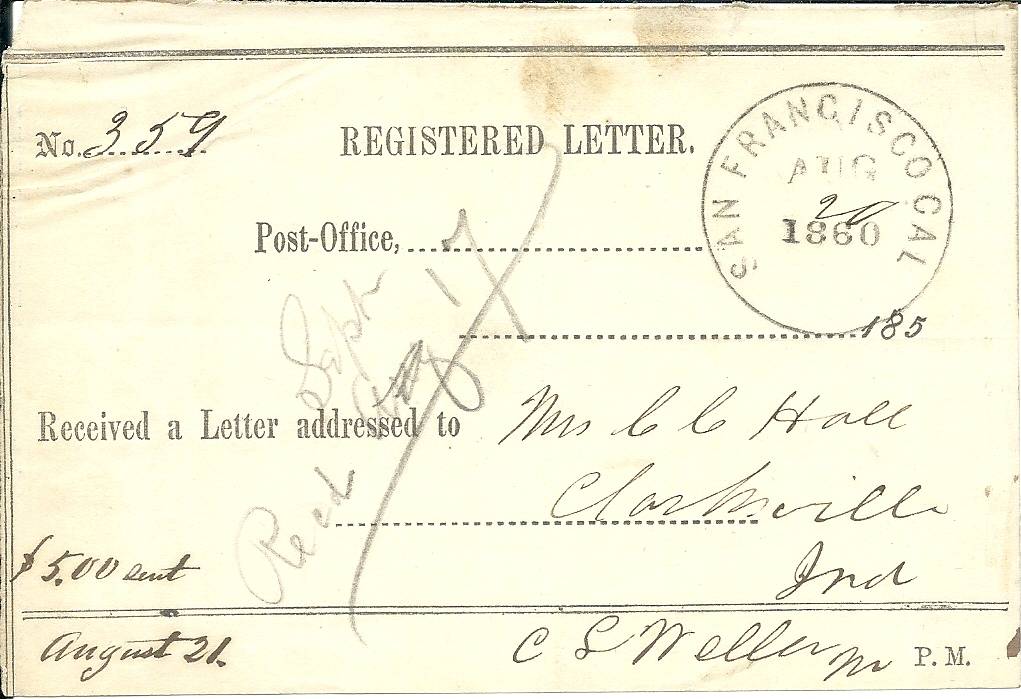 No. 359
REGISTERED LETTER.
SAN FRANCISCO CAL
AUG
20
1860
Post-Office,
185
Recd Sept 17
Received a Letter addressed to Mrs C C Hall
Clarksville
Ind
$5.00 sent
August 21.
C L Weller P. M.